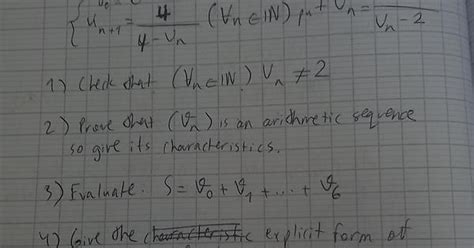 U_{n+1} = 4 / (4 - U_n) (∀n ∈ ℕ) put V_n = / (U_n - 2)
1) Check that (∀n ∈ ℕ) U_n ≠ 2
2) Prove that (V_n) is an arithmetic sequence
so give its characteristics.
3) Evaluate. S = V_0 + V_1 + ... + V_6
4) Give the explicit form of